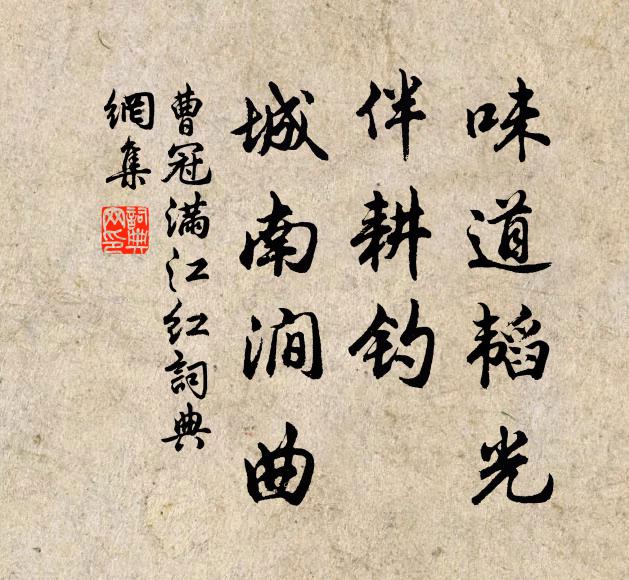 味道韬光
伴耕钓
城南涧曲
曹冠满江红詞典
網集
詞典
网印